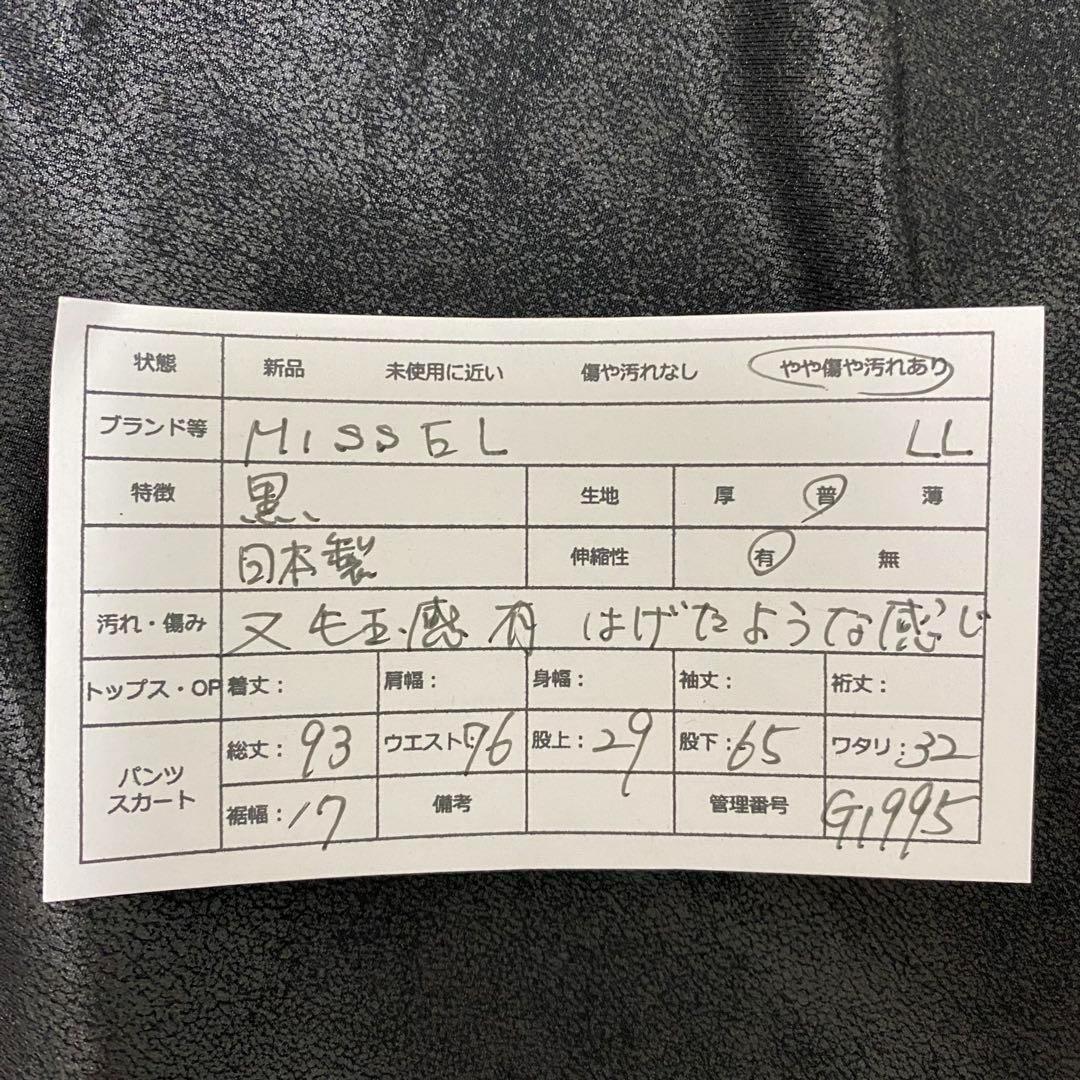 状態 新品 未使用に近い 傷や汚れなし やや傷や汚れあり
ブランド等 MISSEL LL
特徴 黒、 生地 厚 普 薄
日本製 伸縮性 有 無
汚れ・傷み 又毛玉、感有 はげたような感じ
トップス・OP 着丈: 肩幅: 身幅: 袖丈: 裄丈:
パンツ スカート
総丈:93 ウエスト:76 股上:29 股下:65 ワタリ:32
裾幅:17 備考 管理番号 G1995